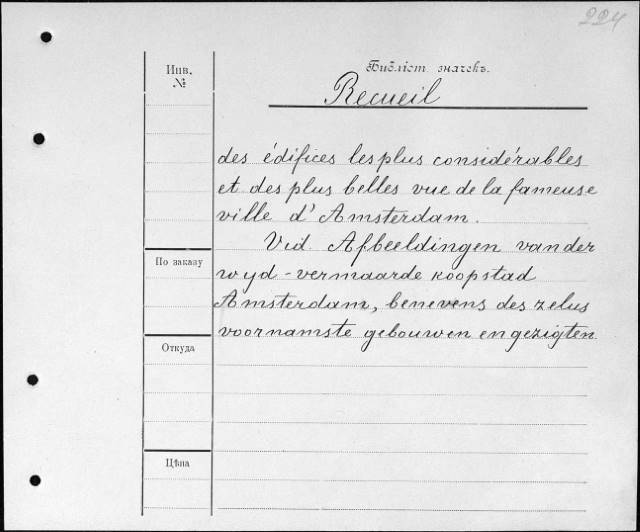 224
Инв. №
Библіот. значекъ.
Recueil
des édifices les plus considérables
et des plus belles vue de la fameuse
ville d'Amsterdam.
Vid. Afbeeldingen van der
wyd-vermaarde koopstad
По заказу
Amsterdam, benevens des zelus
voornamste gebouwen en gezigten
Откуда
Цѣна